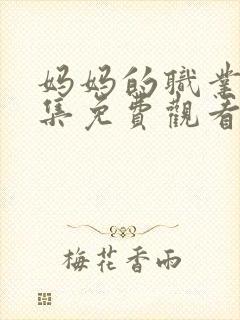 妈妈的職業
集免費觀看
梅花香雨